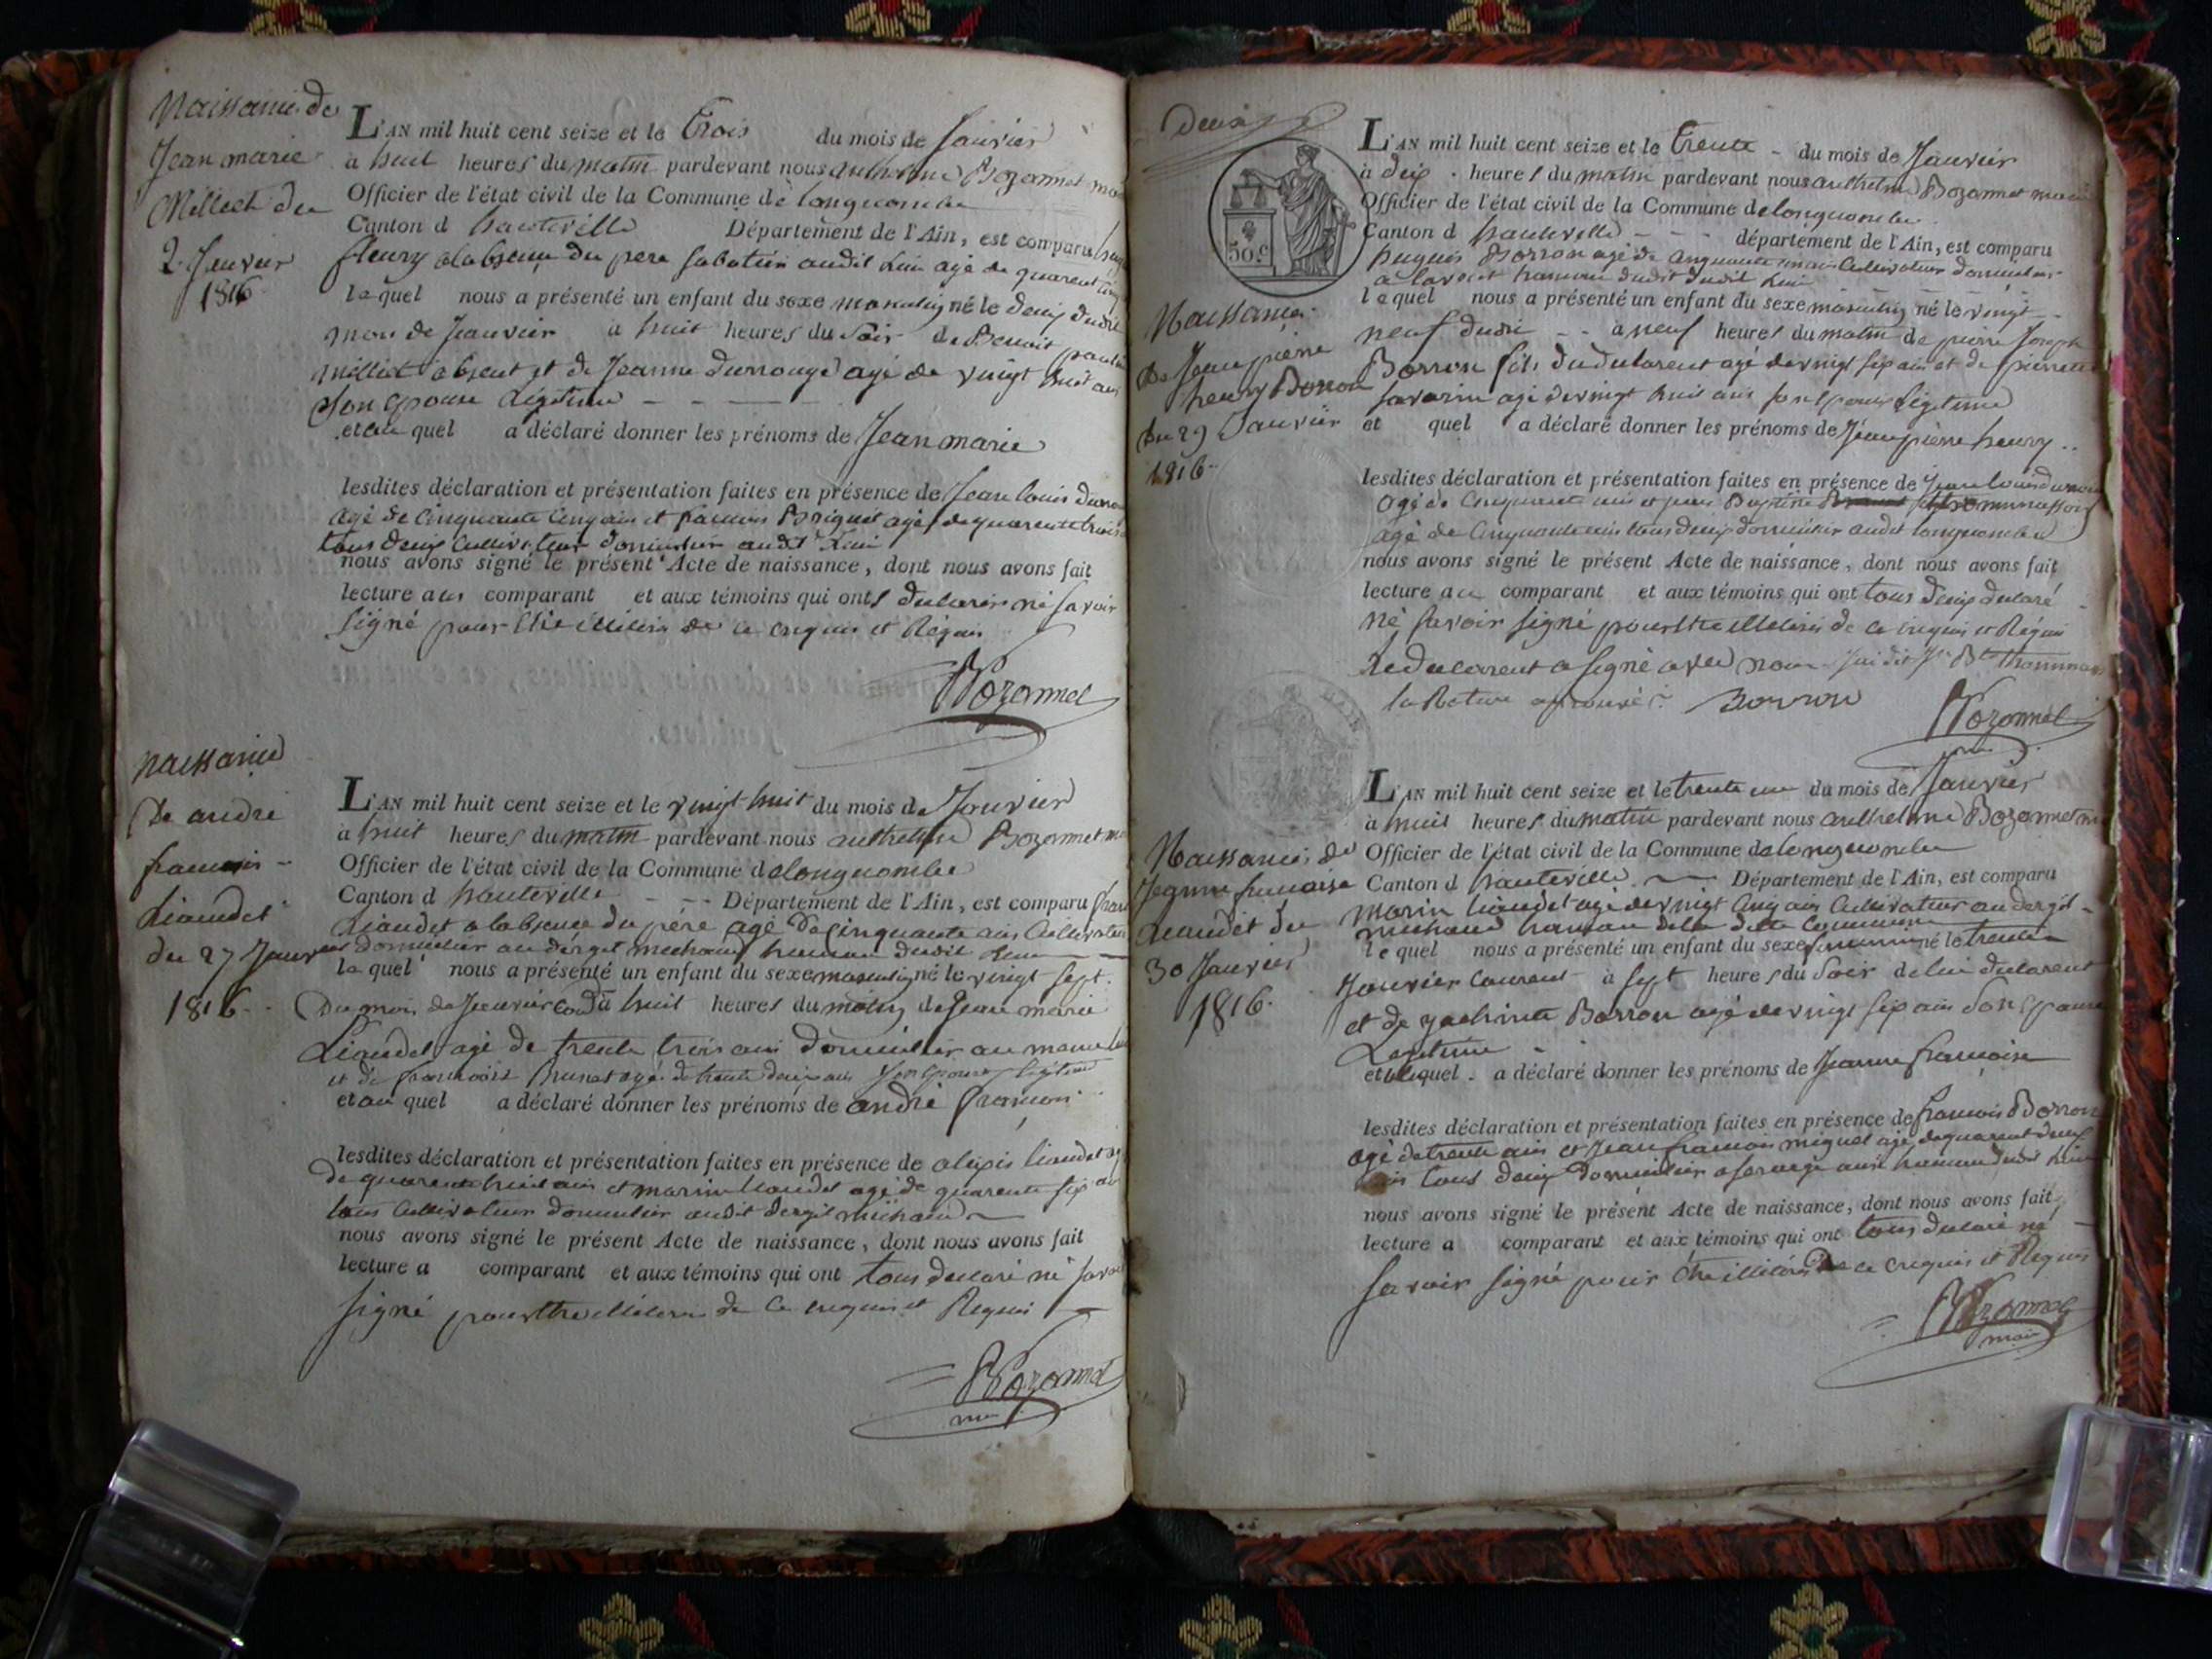 Naissance de
Jean marie
Milliet du
2 Janvier
1816
L'AN mil huit cent seize et le trois du mois de Janvier
à huit heures du matin pardevant nous anthelme Bozonnet
Officier de l'état civil de la Commune de longecombe
Canton d hauteville Département de l'Ain, est comparu
fleury a labsence du pere audit Lieu agé de quarente
lequel nous a présenté un enfant du sexe masculin né le deux dudit
mois de Janvier à huit heures du Soir de Benoit
milliet absent et de Jeanne durrouge agé de vingt huit ans
Son epouse Légitime
et au quel a déclaré donner les prénoms de Jean marie
lesdites déclaration et présentation faites en présence de Jean louis
agé de Cinquante Cinq ans et francois agé de quarente trois
tous deux Cultivateur domicilier audit Lieu
nous avons signé le présent Acte de naissance, dont nous avons fait
lecture aux comparant et aux témoins qui ont déclarés né savoir
Signé pour de ce enquis et Réquis
Bozonnet
naissance
De andré
francois
Liaudet
du 27 Janvier
1816
L'AN mil huit cent seize et le vingt huit du mois de Janvier
à huit heures du matin pardevant nous anthelme Bozonnet
Officier de l'état civil de la Commune de longecombe
Canton d hauteville Département de l'Ain, est comparu
Liaudet a labsence du père agé de Cinquante ans Cultivateur
domicilier au dergit michaud hameau dudit Lieu
lequel nous a présenté un enfant du sexe masculin né le vingt sept
Du mois de Janvier à huit heures du matin de Jean marie
Liaudet agé de trente trois ans domicilier au meme
et de francoise Brunet agé de trente deux ans Son epouse légitime
et au quel a déclaré donner les prénoms de andré francois
lesdites déclaration et présentation faites en présence de alexis liaudet
de quarente huit ans et marin liaudet agé de quarente six
tous Cultivateur domicilier audit dergit michaud
nous avons signé le présent Acte de naissance, dont nous avons fait
lecture a comparant et aux témoins qui ont tous déclaré né
signé pour de ce enquis et Requis
Bozonnet
Deux
50.c
Naissance
De Jean pierre
henry Borron
Du 29 Janvier
1816
L'AN mil huit cent seize et le trente du mois de Janvier
à dix heures du matin pardevant nous anthelme Bozonnet
Officier de l'état civil de la Commune de longecombe
Canton d hauteville département de l'Ain, est comparu
huguis Borron agé de Cultivateur domicilier
a hameau dudit Lieu
lequel nous a présenté un enfant du sexe masculin né le vingt
neuf dudit à neuf heures du matin de pierre Joseph
Borron fils du declarent agé de vingt six ans et de pierrette
savarin agé de vingt huit ans son epouse légitime
et quel a déclaré donner les prénoms de Jean pierre henry
lesdites déclaration et présentation faites en présence de Jean louis
agé de Cinquante ans et jean Baptiste
agé de Cinquante tous deux domicilier audit longecombe
nous avons signé le présent Acte de naissance, dont nous avons fait
lecture au comparant et aux témoins qui ont tous deux déclaré
né savoir signé pour de ce enquis et Réquis
Le declarent a signé avec nous
la Rature approuvé Borron
Bozonnet
Naissance de
Jeanne francoise
Liaudet du
30 Janvier
1816
L'AN mil huit cent seize et le trente un du mois de Janvier
à huit heures du matin pardevant nous anthelme Bozonnet
Officier de l'état civil de la Commune de longecombe
Canton d hauteville Département de l'Ain, est comparu
marin liaudet agé de vingt Cinq ans Cultivateur au dergit
michaud hameau de la dite Commune
lequel nous a présenté un enfant du sexe feminin né le trente
Janvier courent à sept heures du Soir de lui declarent
et de yachinte Borron agé de vingt six ans Son epouse
Legitime
et quel a déclaré donner les prénoms de Jeanne francoise
lesdites déclaration et présentation faites en présence de francois Borron
agé de trente ans et Jean francois miguet agé de quarent deux
ans tous deux domicilier hameau dudit Lieu
nous avons signé le présent Acte de naissance, dont nous avons fait
lecture a comparant et aux témoins qui ont tous déclaré né
savoir signé pour de ce enquis et Requis
Bozonnet
maire